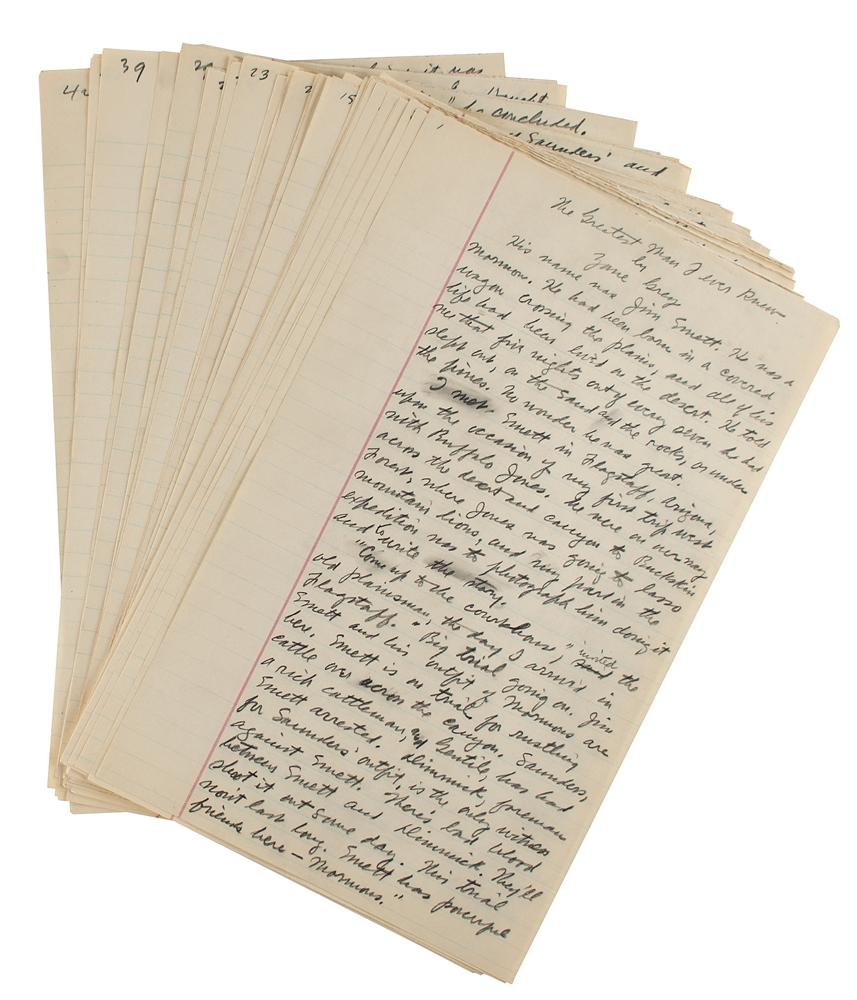 42
39
23
15
it was
a thought
" he concluded.
Saunders' and
1
The Greatest Man I ever Knew
by
Zane Grey
His name was Jim Emett. He was a
Mormon. He had been born in a covered
wagon crossing the plains, and all of his
life had been lived on the desert. He told
me that five nights out of every seven he had
slept out, on the sand and the rocks, or under
the pines. No wonder he was great.
I met Emett in Flagstaff, Arizona,
upon the occasion of my first trip west
with Buffalo Jones. We were on our way
across the desert and canyon to Buckskin
Forest, where Jones was going to lasso
mountain lions, and my part in the
expedition was to photograph him doing it
and to write the story.
"Come up to the courthouse," invited the
old plainsman, the day I arrived in
Flagstaff. "Big trial going on. Jim
Emett and his outfit of Mormons are
here. Emett is on trial for rustling
cattle over across the canyon. Saunders,
a rich cattleman, and Gentile, has had
Emett arrested. Dimmick, foreman
for Saunders' outfit, is the only witness
against Emett. There's bad blood
between Emett and Dimmick. They'll
shoot it out some day. This trial
won't last long. Emett has powerful
friends here — Mormons."